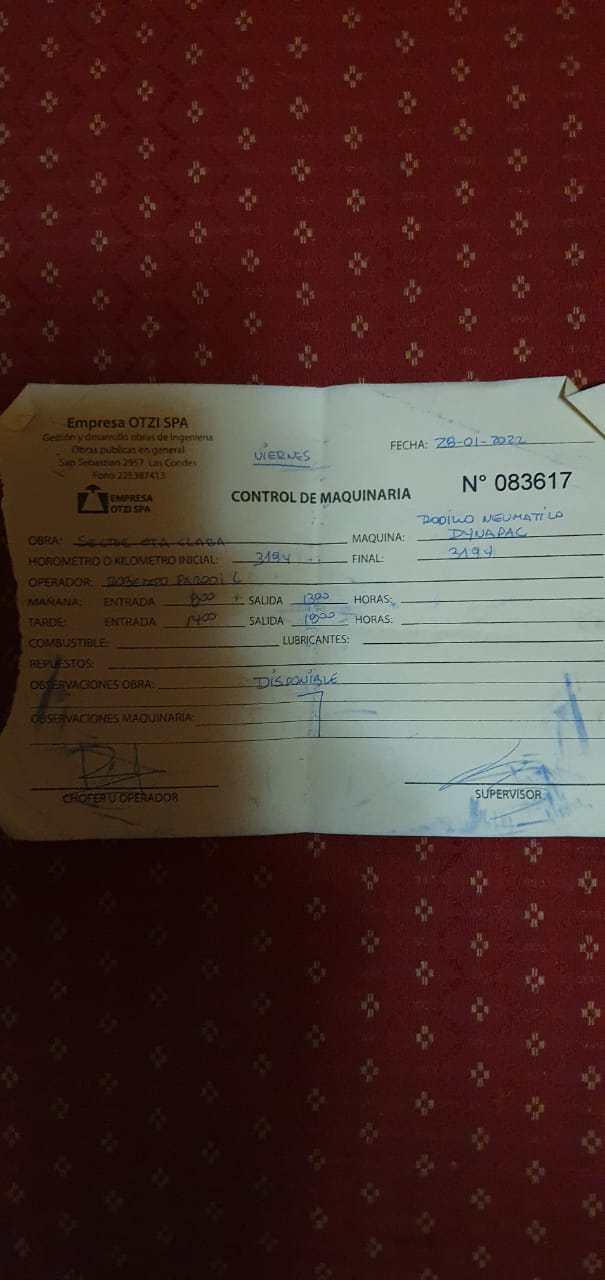 Empresa OTZI SPA
Gestión y desarrollo obras de Ingeniería
Obras publicas en general
San Sebastian 2957. Las Condes
Fono 225387413
EMPRESA
OTZI SPA
VIERNES
FECHA: 28-01-2022
CONTROL DE MAQUINARIA
N° 083617
OBRA: SECTOR STA CLARA
MAQUINA: RODILLO NEUMATICO
DYNAPAC
HOROMETRO O KILOMETRO INICIAL: 3194
FINAL: 3194
OPERADOR:
MAÑANA: ENTRADA 800 SALIDA 1300 HORAS:
TARDE: ENTRADA 1400 SALIDA 1800 HORAS:
COMBUSTIBLE: LUBRICANTES:
REPUESTOS:
OBSERVACIONES OBRA: DISPONIBLE
OBSERVACIONES MAQUINARIA:
CHOFER U OPERADOR
SUPERVISOR